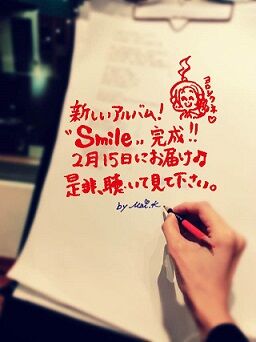 ヨロシクネ♡
新しいアルバム!
"Smile„完成!!
2月15日にお届け♪
是非、聴いて見て下さい。
by Mai.K